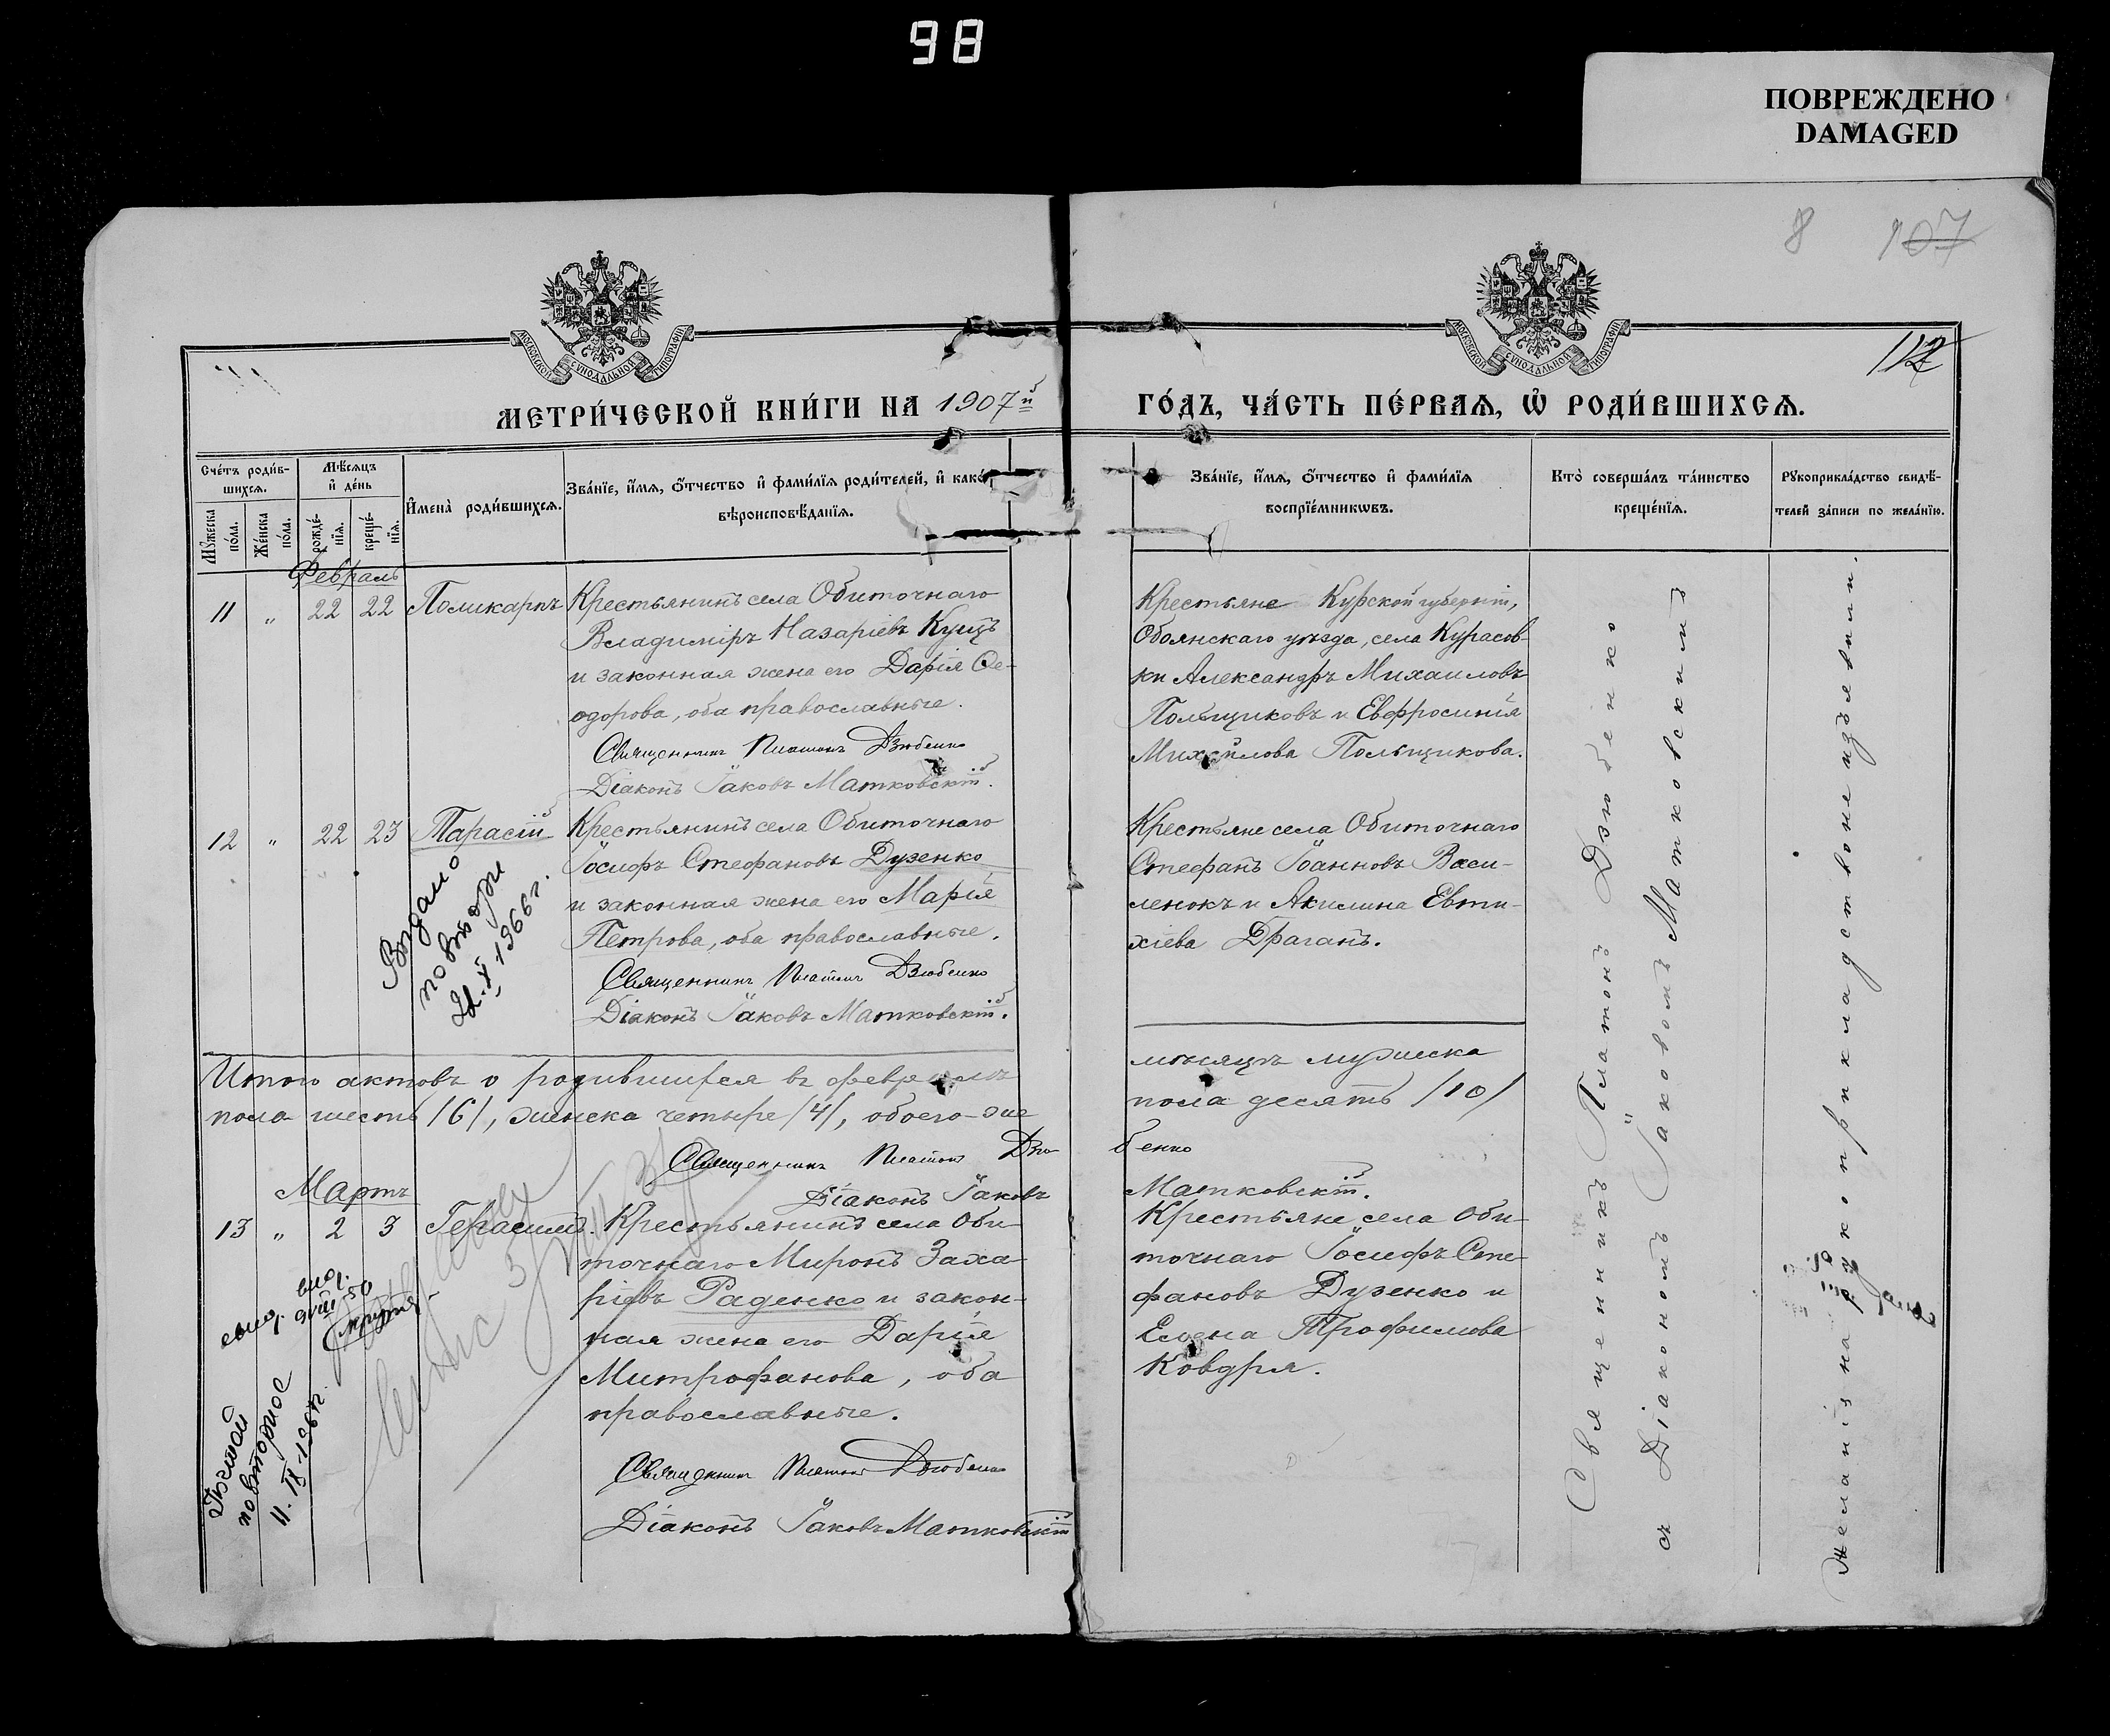 98
ПОВРЕЖДЕНО
DAMAGED
8 107
112
МОСКОВСКОЙ СУНОДАЛЬНОЙ ТИПОГРАФІИ
МОСКОВСКОЙ СУНОДАЛЬНОЙ ТИПОГРАФІИ
МЕТРИ́ЧЕСКОЙ КНИ́ГИ НА 1907й ГО́ДЪ, ЧА́СТЬ ПЕ́РВАѦ, Ѡ РОДИ́ВШИХСѦ.
Сче́тъ роди́в-
шихсѧ.
Мꙋ́жеска по́ла.
Же́нска по́ла.
Мѣ́сѧцъ
и҆ де́нь
рожде́-
нїѧ.
креще́-
нїѧ.
И҆мена̀ роди́вшихсѧ.
Зва́нїе, и҆́мѧ, ѻ҆́тчество и҆ фами́лїѧ роди́телей, и҆ како́г
вѣроисповѣ́данїѧ.
Зва́нїе, и҆́мѧ, ѻ҆́тчество и҆ фами́лїѧ
воспрїе́мникѡвъ.
Кто̀ соверша́лъ та́инство
креще́нїѧ.
Рꙋкоприкла́дство свидѣ́-
телей за́писи по жела́нїю.
Февраль
11 " 22 22 Поликарпъ
Крестьянинъ села Обиточнаго
Владиміръ Назаріевъ Куцъ
и законная жена его Дарія Ѳе-
одорова, оба православные.
Священникъ Платонъ Дзюбенко
Діаконъ Іаковъ Матковскій.
Крестьяне Курской губерніи,
Обоянскаго уѣзда, села Курасов-
ки Александръ Михаиловъ
Польщиковъ и Евфросинія
Михайлова Польщикова.
12 " 22 23 Тарасій
Крестьянинъ села Обиточнаго
Іосифъ Стефановъ Дузенко
и законная жена его Марія
Петрова, оба православные.
Священникъ Платонъ Дзюбенко
Діаконъ Іаковъ Матковскій.
Крестьяне села Обиточнаго
Стефанъ Іоанновъ Васи-
ленокъ и Акилина Евти-
хіева Драганъ.
Видано
повторн
1966 г.
Итого актовъ о родившихся въ февралѣ мѣсяцѣ мужеска
пола шесть /6/, женска четыре /4/, обоего-же пола десять /10/
Священникъ Платонъ Дзюбенко
Діаконъ Іаковъ Матковскій.
Мартъ
13 " 2 3 Герасимъ.
Крестьянинъ села Оби-
точнаго Миронъ Заха-
ріевъ Раденко и закон-
ная жена его Дарія
Митрофанова, оба
православные.
Священникъ Платонъ Дзюбенко
Діаконъ Іаковъ Матковскій
Крестьяне села Оби-
точнаго Іосифъ Сте-
фановъ Дузенко и
Елена Трофимова
Ковдря.
повторное
11. IX. 1967г.
Священникъ Платонъ Дзюбенко
съ Діакономъ Іаковомъ Матковскимъ
Желанія на рукоприкладство не изъявили.